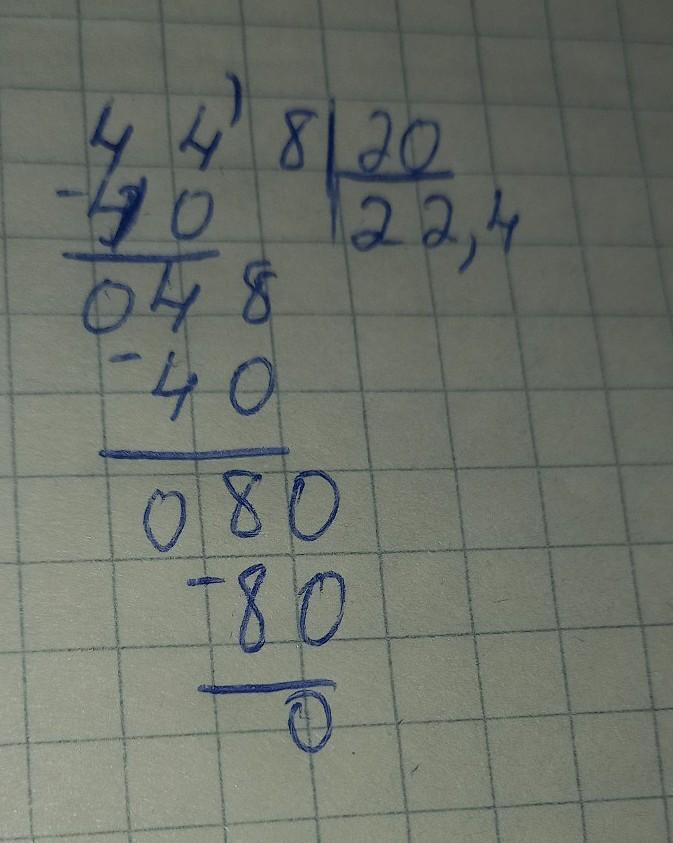 44’8|20
-40 22,4
048
-40
080
-80
0